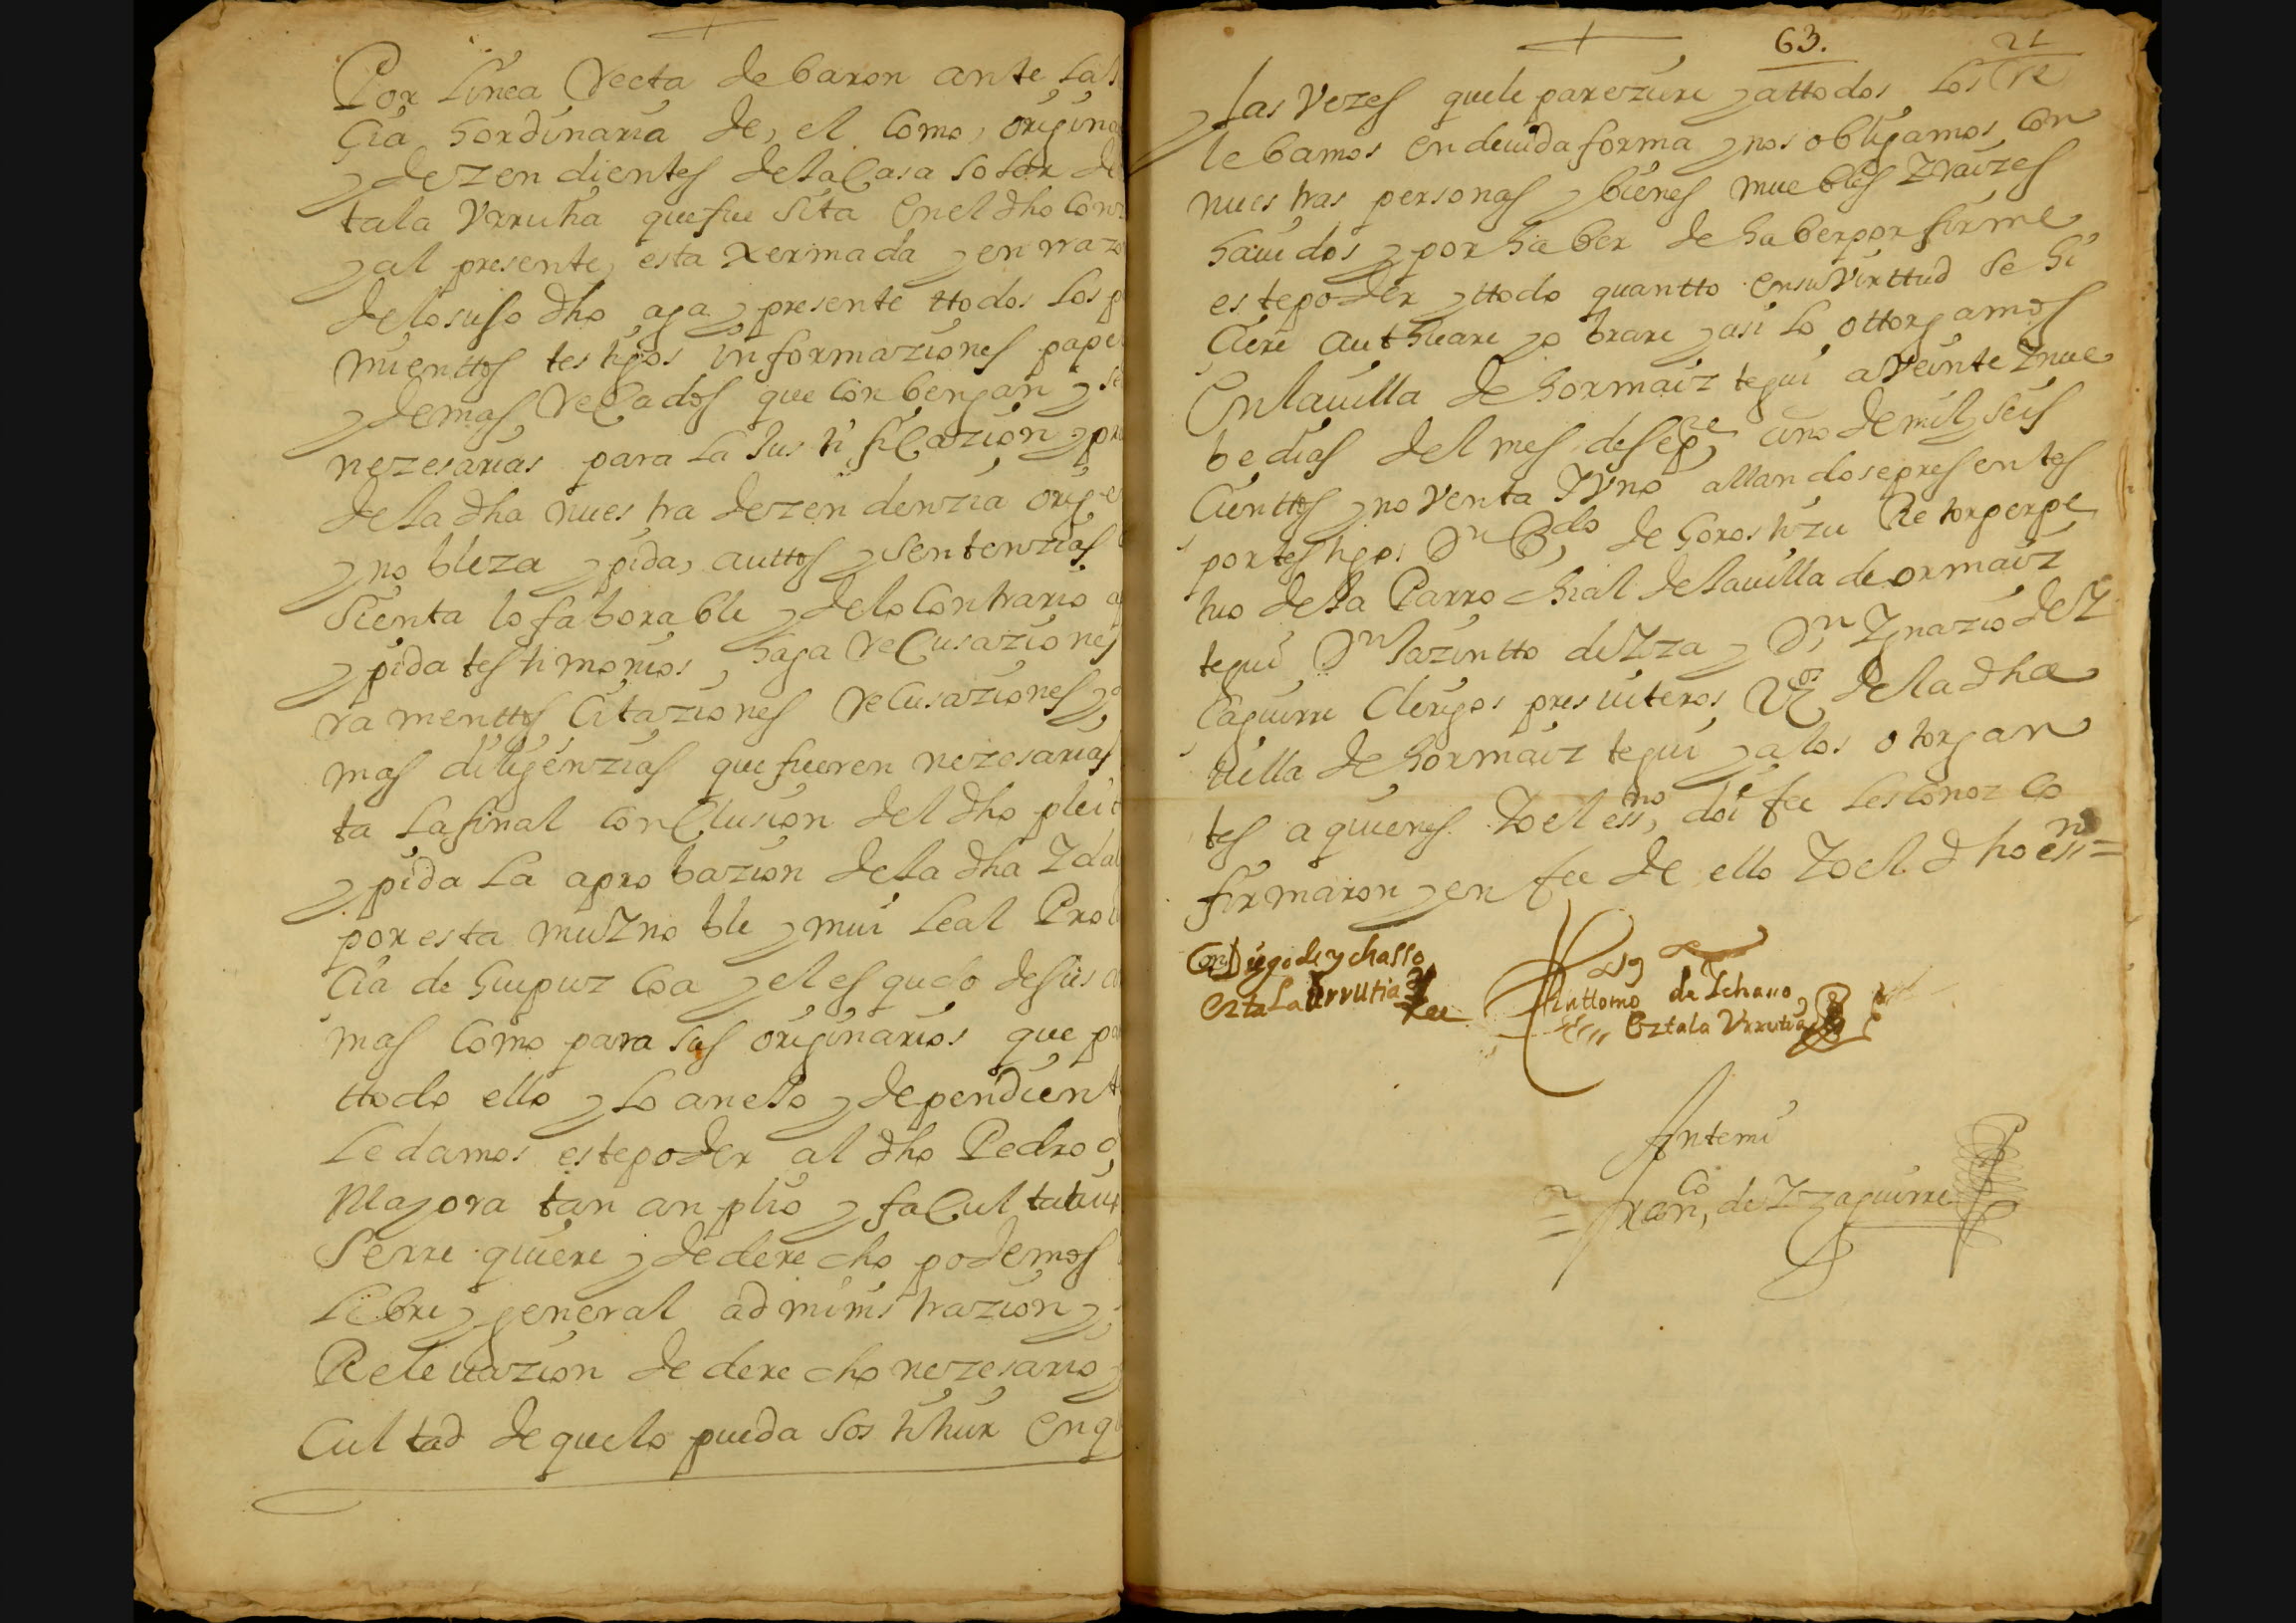 Por linea Recta de baron ante la Jus
ticia hordinaria de, el como, origina
y dezendientes de la Casa solar de
tala Vrrutia que fue sita en el dho Conz
y al presente, esta xermada y en rrazo
de lo suso dho aga y presente ttodos los p
mienttos testigos informaziones pape
y demas ReCados que conbengan y se
nezesarias para la Justificazion y pr
de la dha nuestra dezendenzia orige
y nobleza y pida, auttos y sentenzias
sienta lo faborable y de lo contrario a
y pida testimonios, haga ReCusaziones
ramenttos Citaziones ReCusaziones y
mas diligenzias que fueren nezesarias
ta la final conClusion del dho pleit
y pida la aprobazion de la dha Ydal
por esta mui noble y mui leal Prou
cia de Guipuzcoa y el esqudo de sus a
mas como para sus originarios que pa
ttodo ello y lo anesso y dependient
Le damos este poder al dho Pedro
Mayora tan anplio y faCultatiu
Se rrequiere y de derecho podemos
Libre y general administrazion y
Releuazion de derecho nezesario y
Cultad de que lo pueda sostituir en q
63. 21
y las vezes que le pareziere y a ttodos los Re
lebamos en deuida forma y nos obligamos con
nuestras personas y bienes muebles Y raizes
hauidos y por haber de haber por firme
este poder y ttodo quantto en su virttud se hi
ciere auttuare y obrare y asi lo ottorgamos
En la uilla de hormaiztegui a veinte Y nue
be dias del mes de sepe, año de mil y seis
Cienttos y noventa Y Vno allandose presentes
por testigos Dn Bdo, de Gorostizu Retor perpe
tuo de la Parrochial de la uilla de ormaiz
tegui Dn Jazintto de Yza y Dn Ygnazio de Y
Caguirre Clerigos presuiteros Vezos de la dha
uilla de hormaiztegui y a los otorgan
tes a quienes Yo el essno, doi fee les conozco
firmaron y en fee de ello Yo el dho essno =
Diego de ychasso
eztala Urrutia
Anttonio de Ichasso
Eztala Vrrutia
Ante mi
Franco, de Yzaguirre